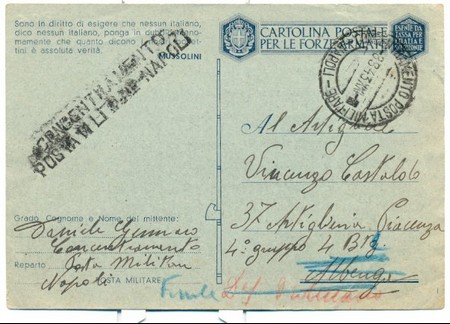 Sono in diritto di esigere che nessun italiano,
dico nessun italiano, ponga in
menomamente che quanto dico
è assoluta verità.
MUSSOLINI
CONCENTRAMENTO
POSTA MILITARE NAPOLI
CARTOLINA POSTALE
PER LE FORZE ARMATE
ESENTE DA
TASSA PER
CONCENTRAMENTO POSTA MILITARE - NAPOLI
Al Artigliere
Vincenzo Cataldo
37 Artiglieria Piacenza
4° gruppo 4 Btr
Albenga
Grado, Cognome e Nome del mittente:
Daniele Gennaro
Concentramento
Reparto Posta Militare
Napoli POSTA MILITARE